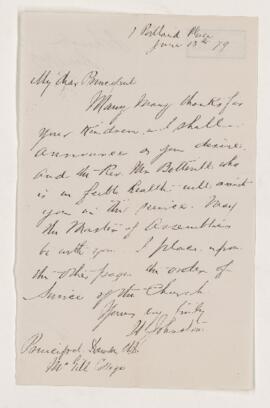 1 Portland Place
June 13th 79
My dear Principal
Many Many thanks for
your kindness. I shall
announce as you desire
and the Rev. Mr Botterell who
is in feeble health will assist
you in the service. May
the Master of Assemblies
be with you. I place upon
the other page the order of
Service of the Church
Yours very truly
H Johnston
Principal Dawson
McGill College